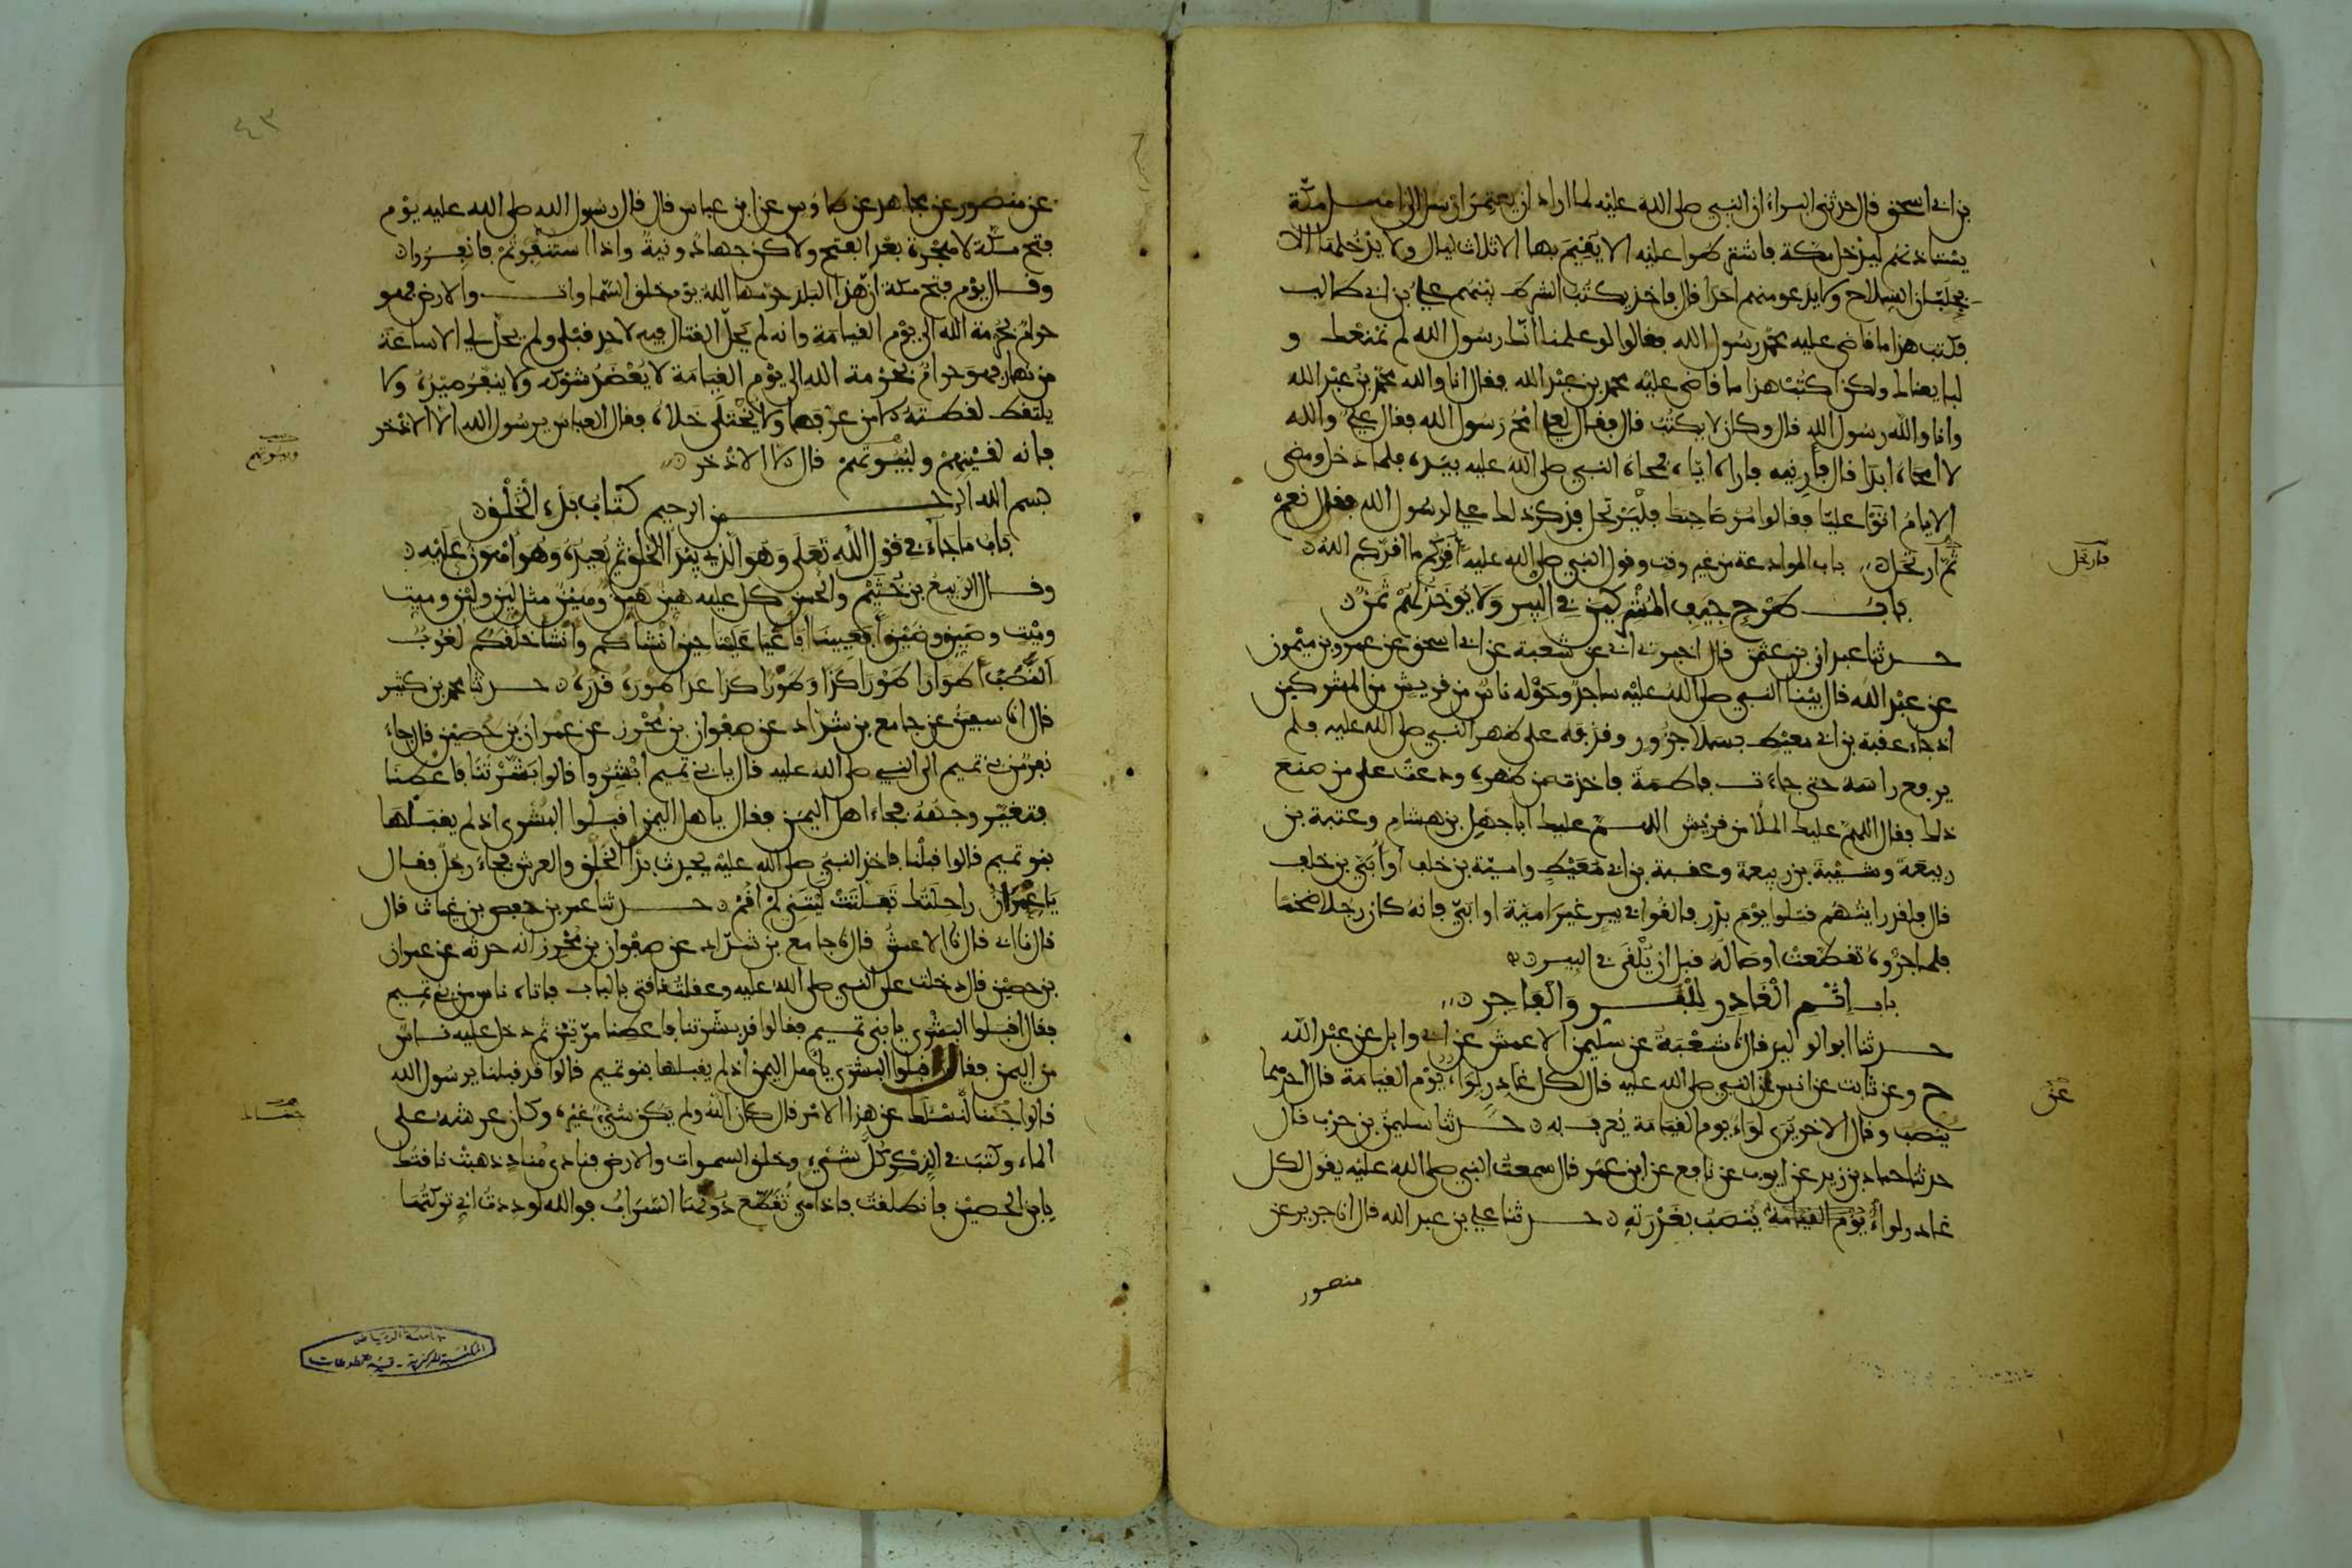 بن ابي اسحق قال حدثني البراء ان النبي صلى الله عليه لما اراد ان يعتمر ارسل الى اهل مكة
يستاذنهم ليدخل مكة فاشترطوا عليه الا يقيم بها الا ثلاث ليال ولا يدخلها الا
بجلبان السلاح ولا يدعو منهم احدا قال فاخذ يكتب الشرط بينهم علي بن ابي طالب
فكتب هذا ما قاضى عليه محمد رسول الله فقالوا لو علمنا انك رسول الله لم نمنعك و
لبايعناك ولكن اكتب هذا ما قاضى عليه محمد بن عبد الله فقال انا والله محمد بن عبد الله
وانا والله رسول الله قال وكان لا يكتب قال فقال لعلي امح رسول الله فقال علي والله
لا امحاه ابدا قال فأرنيه فاراه اياه فمحاه النبي صلى الله عليه بيده فلما دخل ومضى
الايام اتوا عليا فقالوا مر صاحبك فليرتحل فذكر ذلك علي لرسول الله فقال نعم
ثم ارتحل باب الموادعة من غير وقت وقول النبي صلى الله عليه اقركم ما اقركم الله
فارتحل
باب طرح جيف المشركين في البير ولا يوخذ لهم ثمن
حدثنا عبدان بن عثمن قال اخبرني ابي عن شعبة عن ابي اسحق عن عمرو بن ميمون
عن عبد الله قال بينا النبي صلى الله عليه ساجد وحوله ناس من قريش من المشركين
اذ جاء عقبة بن ابي معيط بسلا جزور وقذفه على ظهر النبي صلى الله عليه فلم
يرفع راسه حتى جاءت فاطمة فاخذت من ظهره ودعت على من صنع
ذلك فقال اللهم عليك الملأ من قريش اللهم عليك ابا جهل بن هشام وعتبة بن
ربيعة وشيبة بن ربيعة وعقبة بن ابي معيط وامية بن خلف او أبي بن خلف
قال فلقد رايتهم قتلوا يوم بدر فالقوا في بير غير امية او ابي فانه كان رجلا ضخما
فلما جروه تقطعت اوصاله قبل ان يلقى في البير
باب اثم الغادر للبر والفاجر
حدثنا ابو الوليد قال نا شعبة عن سليمن الاعمش عن ابي وايل عن عبد الله
ح وعن ثابت عن انس عن النبي صلى الله عليه قال لكل غادر لواء يوم القيامة قال احدهما
عن
ينصب وقال الاخر يرى لواء يوم القيامة يعرف به حدثنا سليمن بن حرب قال
حدثنا حماد بن زيد عن ايوب عن نافع عن ابن عمر قال سمعت النبي صلى الله عليه يقول لكل
غادر لواء يوم القيامة ينصب بغدرته حدثنا علي بن عبد الله قال انا جرير عن
منصور
٤٣
عن منصور عن مجاهد عن طاوس عن ابن عباس قال قال رسول الله صلى الله عليه يوم
فتح مكة لا هجرة بعد الفتح ولاكن جهاد ونية واذا استنفرتم فانفروا
وقال يوم فتح مكة ان هذا البلد حرمها الله يوم خلق السماوات والارض فهو
حرام بحرمة الله الى يوم القيامة وانه لم يحل القتال فيه لاحد قبلي ولم يحل لي الا ساعة
من نهار فهو حرام بحرمة الله الى يوم القيامة لا يعضد شوكه ولا ينفر صيده ولا
يلتقط لقطته الا من عرفها ولا يختلى خلاه فقال العباس يرسول الله الا الاذخر
فانه لقينهم ولبيوتهم قال الا الاذخر
وبيوتهم
بسم الله الرحمن الرحيم كتاب بدء الخلق
باب ما جاء في قول الله تعلى وهو الذي يبدا الخلق ثم يعيده وهو اهون عليه
وقال الربيع بن خثيم والحسن كل عليه هين هين وهين مثل لين ولين وميت
وميت وضيق وضيق افعيينا افاعيا علينا حين انشاكم وانشا خلقكم لغوب
النصب اطوارا طورا كذا وطورا كذا عدا طوره قدره حدثنا محمد بن كثير
قال انا سفين عن جامع بن شداد عن صفوان بن محرز عن عمران بن حصين قال جاء
نفر من بني تميم الى النبي صلى الله عليه قال يا بني تميم ابشروا قالوا بشرتنا فاعطنا
فتغير وجهه فجاء اهل اليمن فقال يا هل اليمن اقبلوا البشرى اذ لم يقبلها
بنو تميم قالوا قبلنا فاخذ النبي صلى الله عليه يحدث بدأ الخلق والعرش فجاء رجل فقال
يا عمران راحلتك تفلتت ليتني لم اقم حدثنا عمر بن حفص بن غياث قال
قال نا ابي قال نا الاعمش قال نا جامع بن شداد عن صفوان بن محرز انه حدثه عن عمران
بن حصين قال دخلت على النبي صلى الله عليه وعقلت ناقتي بالباب فاتاه ناس من بني تميم
فقال اقبلوا البشرى يا بني تميم فقالوا قد بشرتنا فاعطنا مرتين ثم دخل عليه ناس
من اليمن فقال اقبلوا البشرى يا هل اليمن اذ لم يقبلها بنو تميم قالوا قد قبلنا يرسول الله
قالوا جئنا لنسئلك عن هذا الامر قال كان الله ولم يكن شيء غيره وكان عرشه على
جئناك
الماء وكتب في الذكر كل شيء وخلق السموات والارض فنادى مناد ذهبت ناقتك
يابن الحصين فانطلقت فاذا هي تقطع دونها السراب فوالله لوددت اني تركتها
جامعة الرياض
المكتبة المركزية - قسم المخطوطات